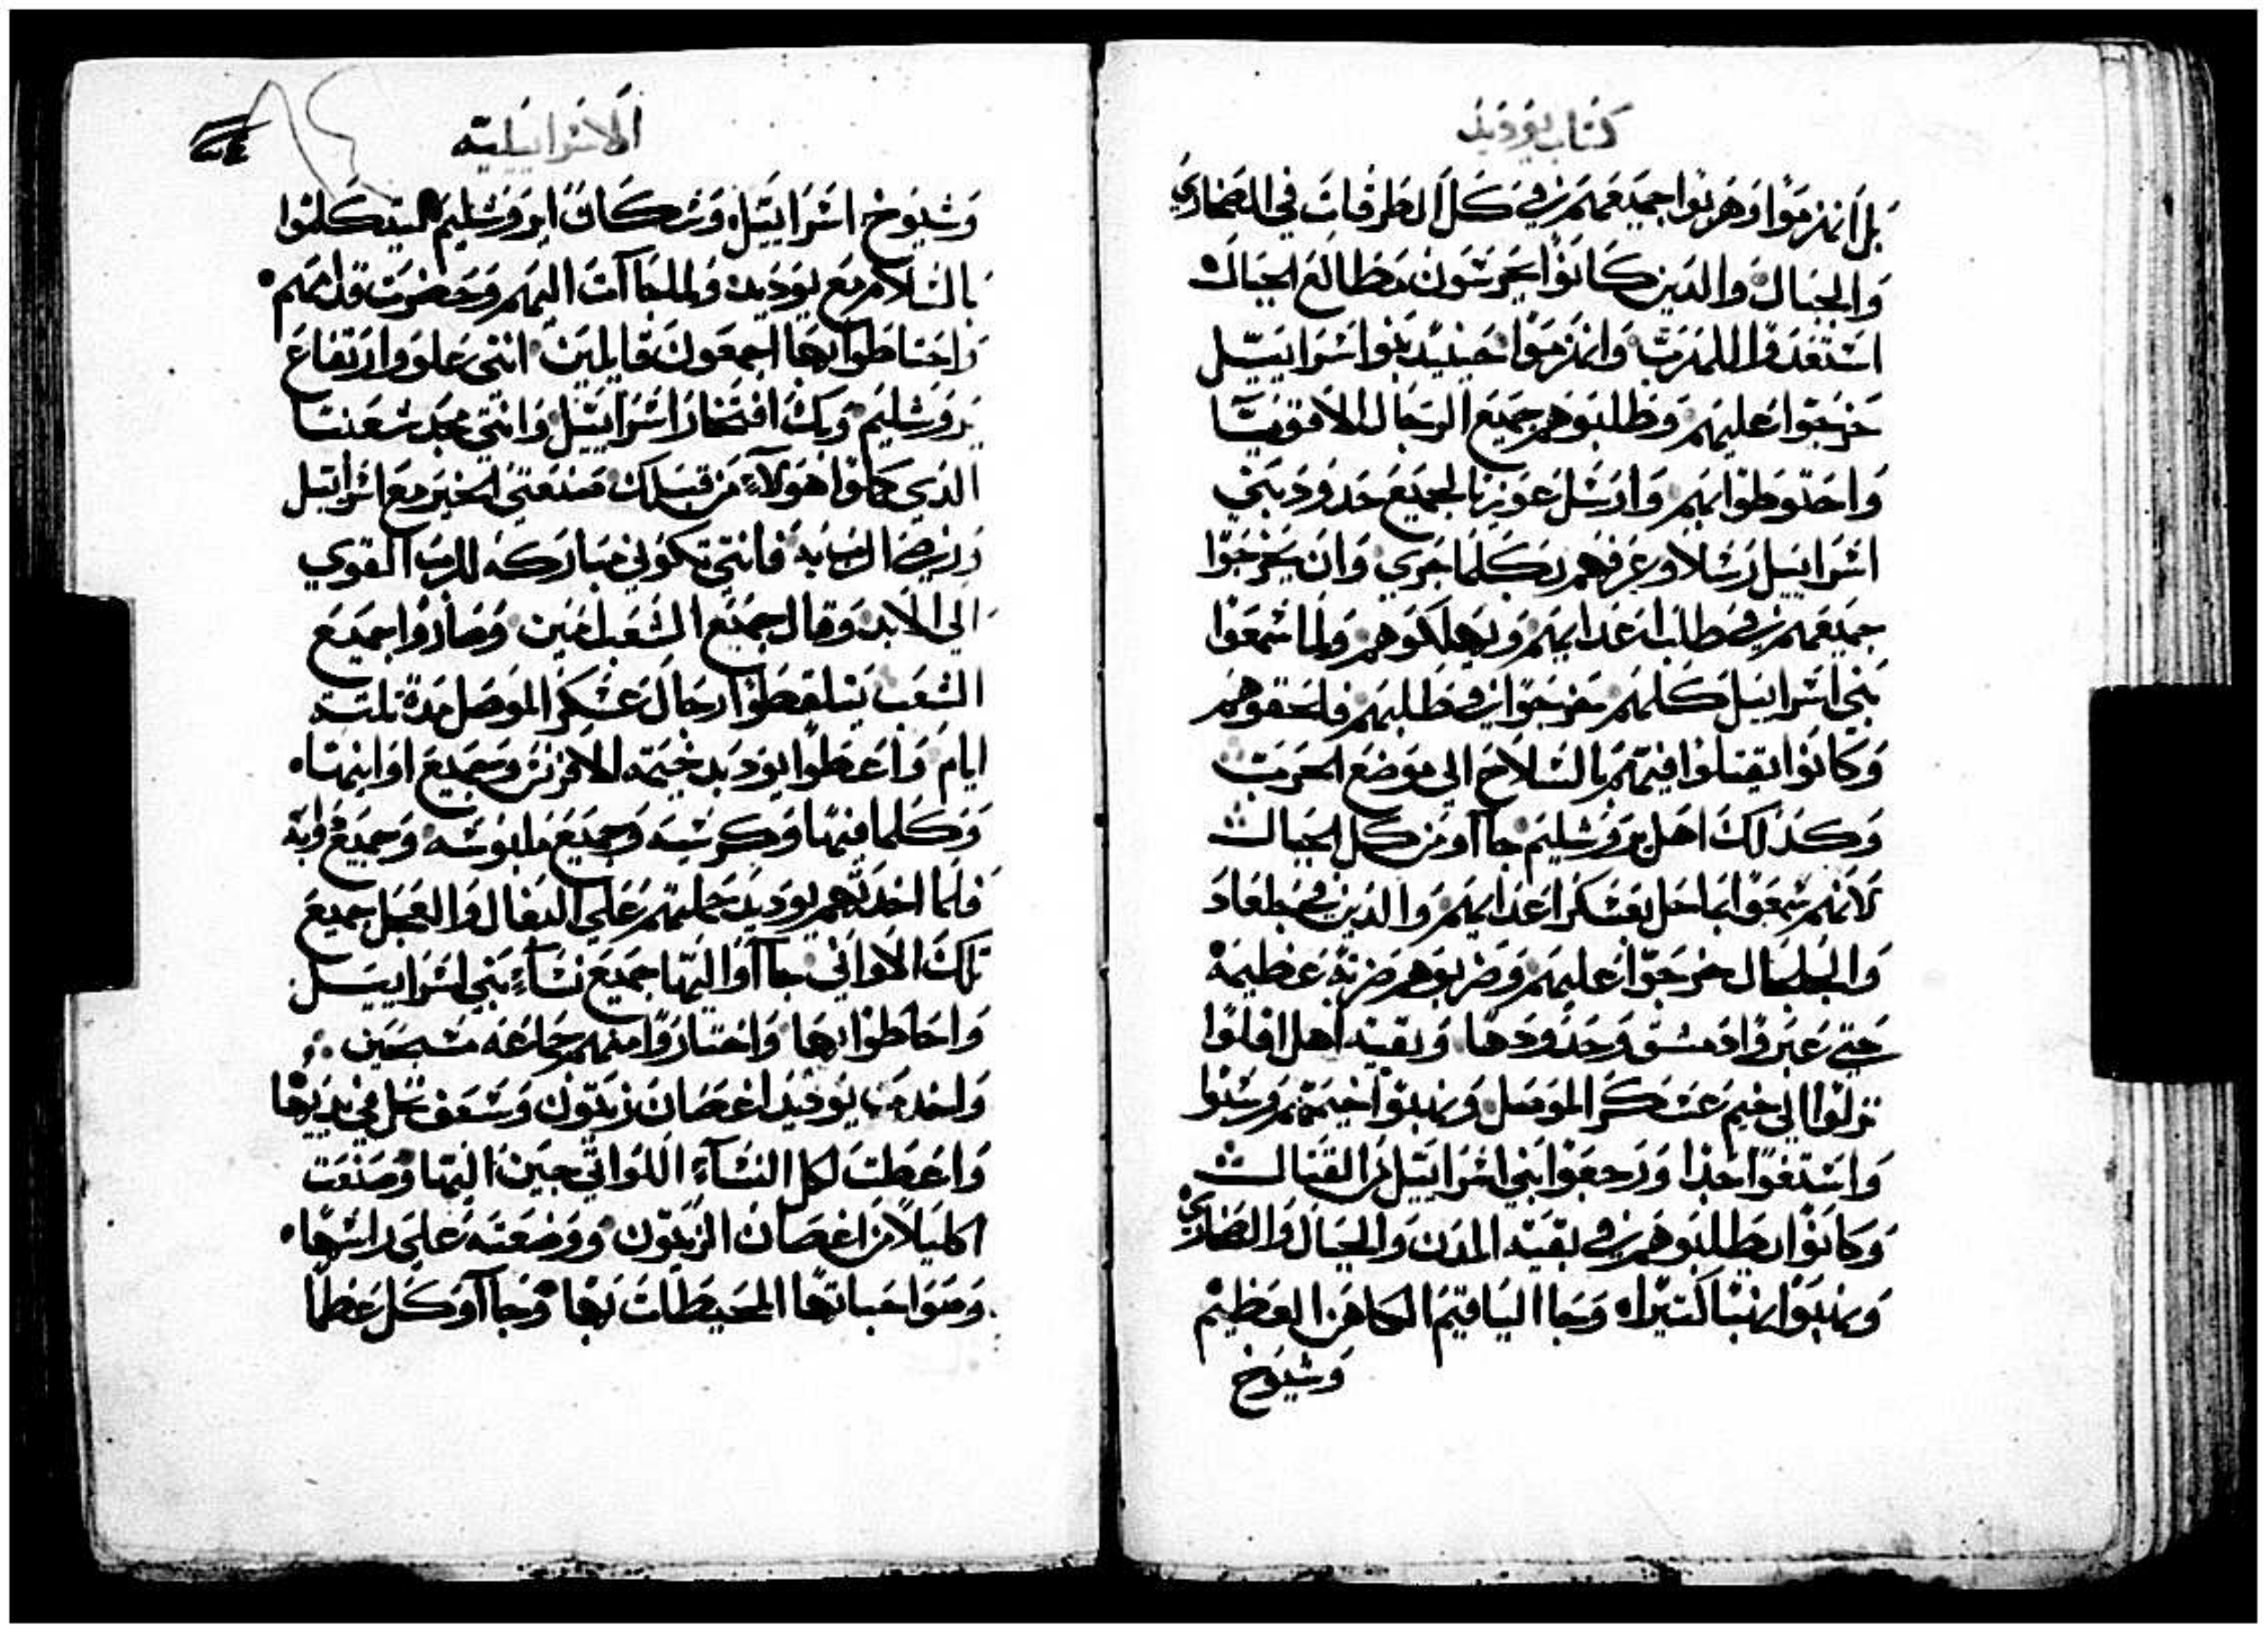 كتاب يوديد
بل انهزموا وهربوا جميعهم في كل الطرقات في الصحاري
والجبال والدين كانوا يحرسون مطالع الجبال
استعدوا للهرب وانهزموا حينيد بنوا اسراييل
خرجوا عليهم وطلبوهم جميع الرجال الاقويا
واحتوطوا بهم وارسل عوزيا لجميع حدود بني
اسراييل رسلا وعرفهم بكلما جري وان يخرجوا
جميعهم في طلب اعدايهم ويهلكوهم ولما سمعوا
بني اسراييل كلهم خرجوا في طلبهم فلحقوهم
وكانوا يقتلوا فيهم بالسلاح الي موضع الحرب
وكذلك اهل يروشليم جاآو من كل الجبال
لانهم سمعوا بما حل بعسكر اعدايهم والدين في جلعاد
والجلجال خرجوا عليهم وضربوهم ضربة عظيمة
حتي عبروا دمشق وحدودها وبقية اهل افلوا
نزلوا الي خيم عسكر الموصل ونهبوا خيمهم وسبوا
واستغنوا جدا ورجعوا بني اسراييل من القتال
وكانوا يطلبوهم في بقية المدن والجبال والصحاري
ونهبوا نهبا كتيرا وجا الياقيم الكاهن العظيم
وشيوخ
الاسراييلية
وشيوخ اسراييل وسكان ايروشليم ليتكلموا
بالسلام مع يوديد ولما جاآت اليهم وحضرت قدامهم
واحتاطوا بها اجمعون قايلين انتي علو وارتفاع
يروشليم وبك افتخار اسراييل وانتي مجد شعبنا
الدي كانوا هولاء من قبلك صنعتي الخير مع اسراييل
ورضا الرب به فانتي تكوني مباركه للرب القوي
الي الابد وقال جميع الشعب امين وصاروا جميع
الشعب يتلقطوا رحال عسكر الموصل مدة تلتة
ايام واعطوا يوديد خيمة الافرنس وجميع اوانيها
وكلما فيها وكرسيه وجميع ملبوسه وجميع دوابه
فلما اخدتهم يوديد حملتهم علي البغال والعجل جميع
تلك الاواني جاآوا اليها جميع نساء بني اسراييل
واحاطوا بها واختاروا منهم جماعه مسبحين
واخدت يوديد اغصان زيتون وسعف نخل في يديها
واعطت لكل النساء اللواتي جين اليها وصنعت
اكليلا من اغصان الزيتون ووضعته علي راسها
وصواحباتها المحيطات بها وجاآو كل عظما